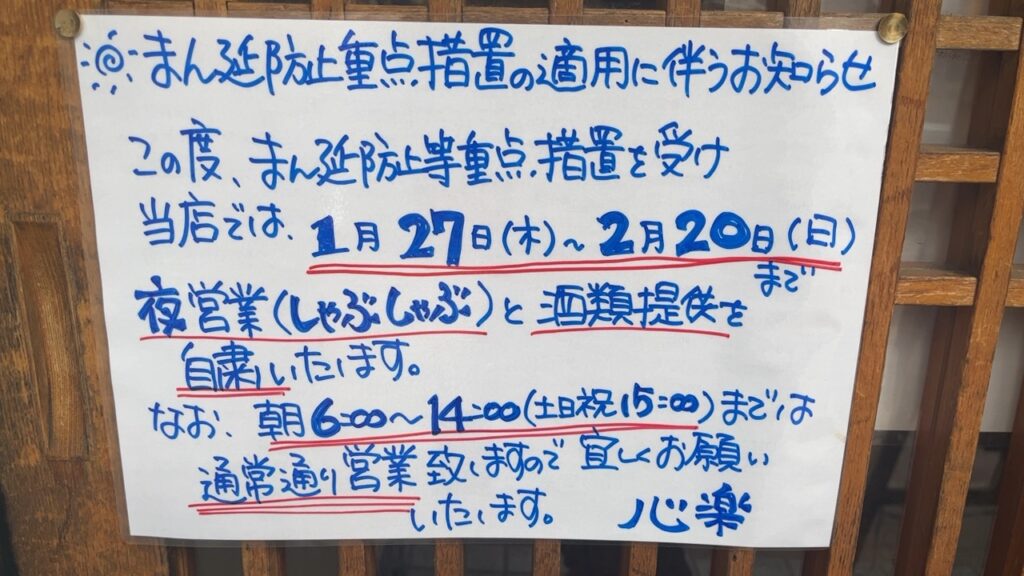 まん延防止重点措置の適用に伴うお知らせ
この度、まん延防止等重点措置を受け
当店では、1月27日(木)～2月20日(日)
まで
夜営業(しゃぶしゃぶ)と酒類提供を
自粛いたします。
なお、朝6:00～14:00(土日祝15:00)までは
通常通り営業致しますので宜しくお願い
いたます。 心楽